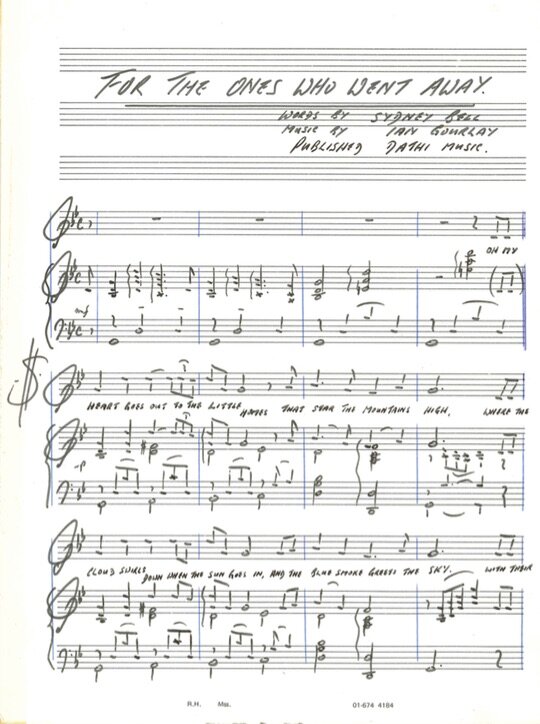 FOR THE ONES WHO WENT AWAY.
WORDS BY SYDNEY BELL
MUSIC BY IAN GOURLAY
PUBLISHED DATHI MUSIC.
OH MY
mf
HEART GOES OUT TO THE LITTLE HOMES THAT STAR THE MOUNTAINS HIGH, WHERE THE
p
CLOUD SWIRLS DOWN WHEN THE SUN GOES IN, AND THE BLUE SMOKE GREETS THE SKY. WITH THEIR
R.H. Mss. 01-674 4184